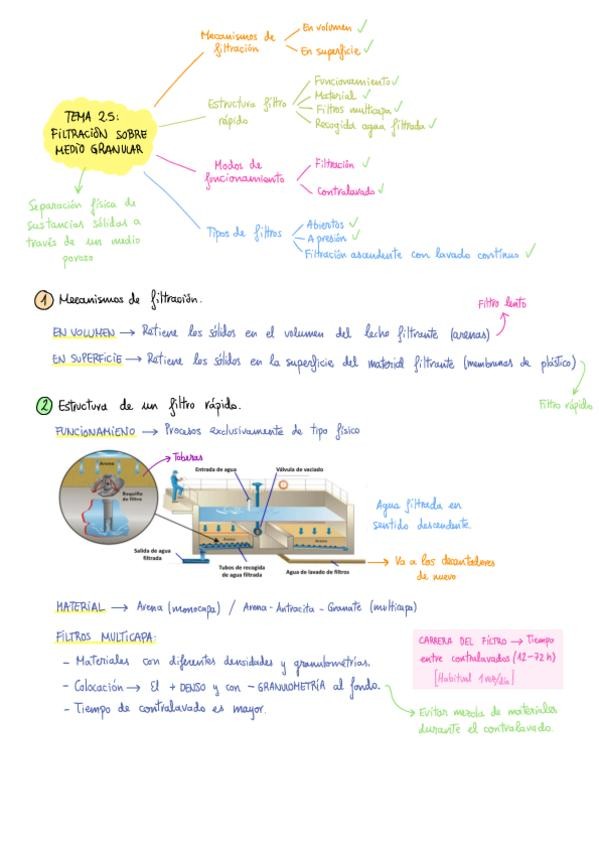 TEMA 25:
FILTRACIÓN SOBRE
MEDIO GRANULAR
Separación física de
sustancias sólidas a
través de un medio
poroso
Mecanismos de
filtración
En volumen ✓
En superficie ✓
Estructura filtro
rápido
Funcionamiento ✓
Material ✓
Filtros multicapa ✓
Recogida agua filtrada ✓
Modos de
funcionamiento
Filtración ✓
Contralavado ✓
Tipos de filtros
Abiertos ✓
A presión ✓
Filtración ascendente con lavado continuo ✓
1 Mecanismos de filtración.
Filtro lento
EN VOLUMEN → Retiene los sólidos en el volumen del lecho filtrante (arenas)
EN SUPERFICIE → Retiene los sólidos en la superficie del material filtrante (membranas de plástico)
Filtro rápido
2 Estructura de un filtro rápido.
FUNCIONAMIENO → Procesos exclusivamente de tipo físico
Arena
Toberas
Boquilla
de filtro
Entrada de agua
Válvula de vaciado
Arena
Arena
Salida de agua
filtrada
Tubos de recogida
de agua filtrada
Agua de lavado de filtros
Agua filtrada en
sentido descendente.
→ Va a los decantadores
de nuevo
MATERIAL → Arena (monocapa) / Arena - Antracita - Granate (multicapa)
FILTROS MULTICAPA:
- Materiales con diferentes densidades y granulometrías.
- Colocación → El + DENSO y con - GRANULOMETRÍA al fondo.
- Tiempo de contralavado es mayor.
CARRERA DEL FILTRO → Tiempo
entre contralavados (12-72 h)
[Habitual 1 vez/día]
Evitar mezcla de materiales
durante el contralavado.